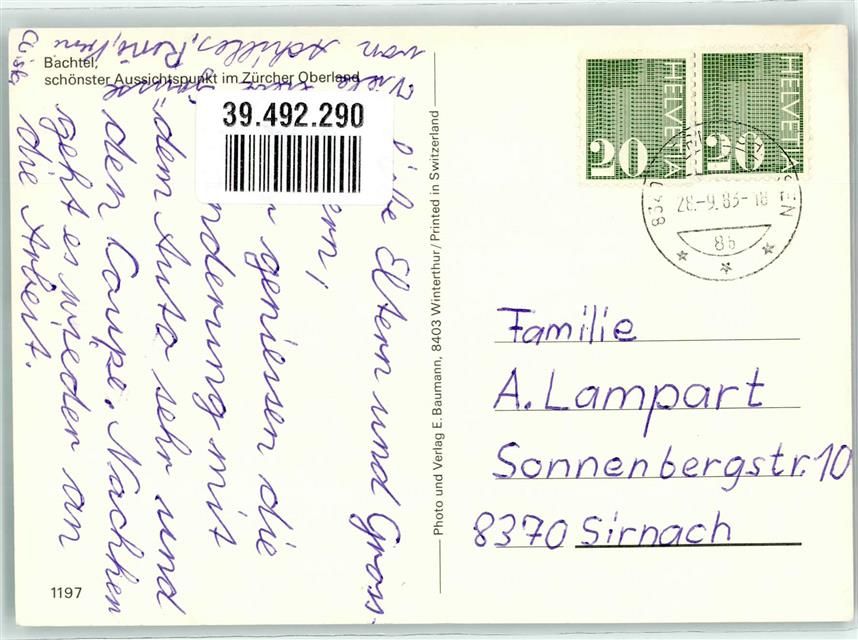 Bachtel,
schönster Aussichtspunkt im Zürcher Oberland
39.492.290
Liebe Eltern und Gross-
ern,
geniessen die
nderung mit
dem Auto sehr und
den Coupe. Nachher
geht es wieder an
die Arbeit.
Viele
von
1197
Photo und Verlag E. Baumann, 8403 Winterthur/Printed in Switzerland
HELVETIA
20
HELVETIA
20
28.-9.83-18
8b
Familie
A. Lampart
Sonnenbergstr. 10
8370 Sirnach